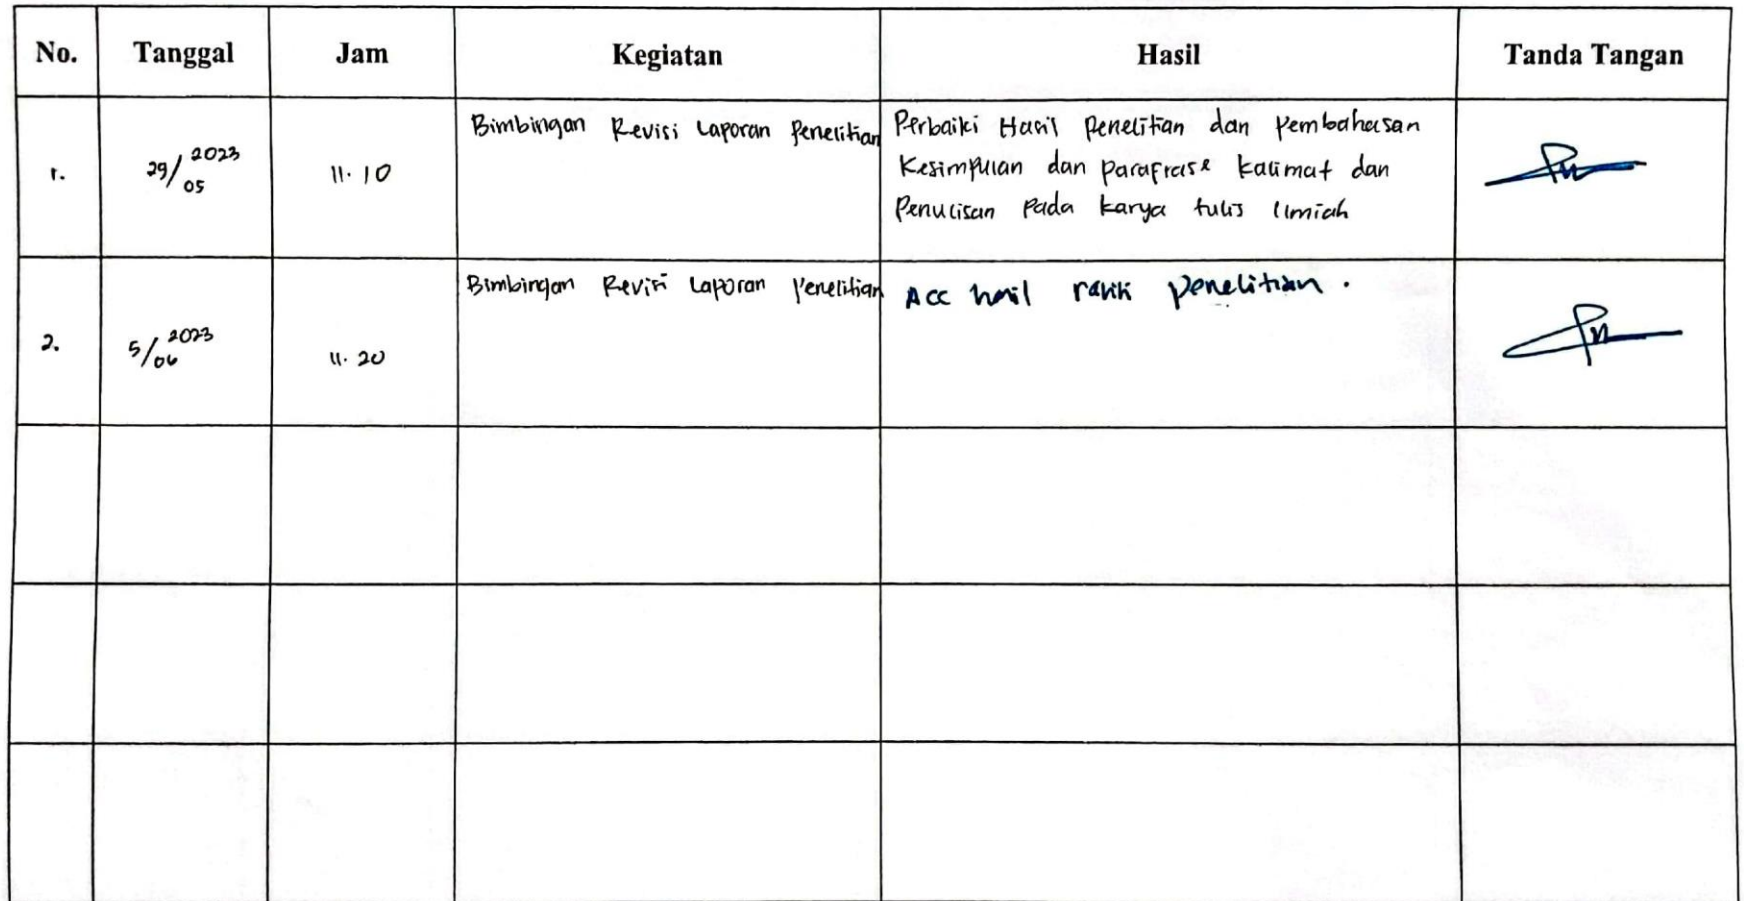 No. Tanggal Jam Kegiatan Hasil Tanda Tangan
1. 29/05 2023 11.10 Bimbingan Revisi Laporan Penelitian Perbaiki Hasil Penelitian dan Pembahasan
Kesimpulan dan parafrase kalimat dan
Penulisan Pada karya tulis Ilmiah
2. 5/06 2023 11.20 Bimbingan Revisi Laporan Penelitian Acc hasil penelitian.